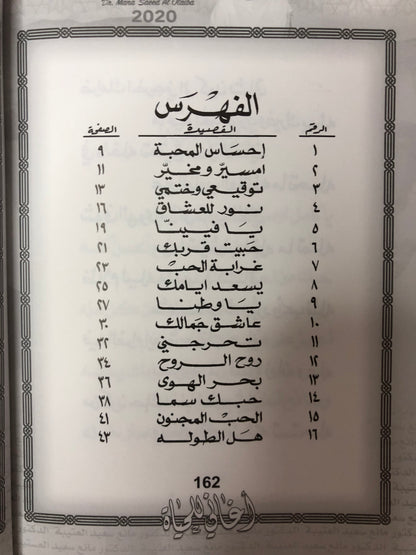 Dr. Mana Saeed Al Otaiba
2020
الفهرس
الرقم القصيدة الصفحة
١ إحساس المحبة ٩
٢ امسيّر و مخيّر ١١
٣ توقيعي وختمي ١٣
٤ نور للعشاق ١٦
٥ يا فيينّا ١٩
٦ حبيت قربك ٢١
٧ غرابة الحب ٢٣
٨ يسعد ايامك ٢٥
٩ يا وطنا ٢٧
١٠ عاشق جمالك ٣٠
١١ تحرجني ٣٢
١٢ روح الروح ٣٤
١٣ بحر الهوى ٣٦
١٤ حبك سما ٣٨
١٥ الحب المجنون ٤١
١٦ هل الطوله ٤٣
162
أغاني للحياة